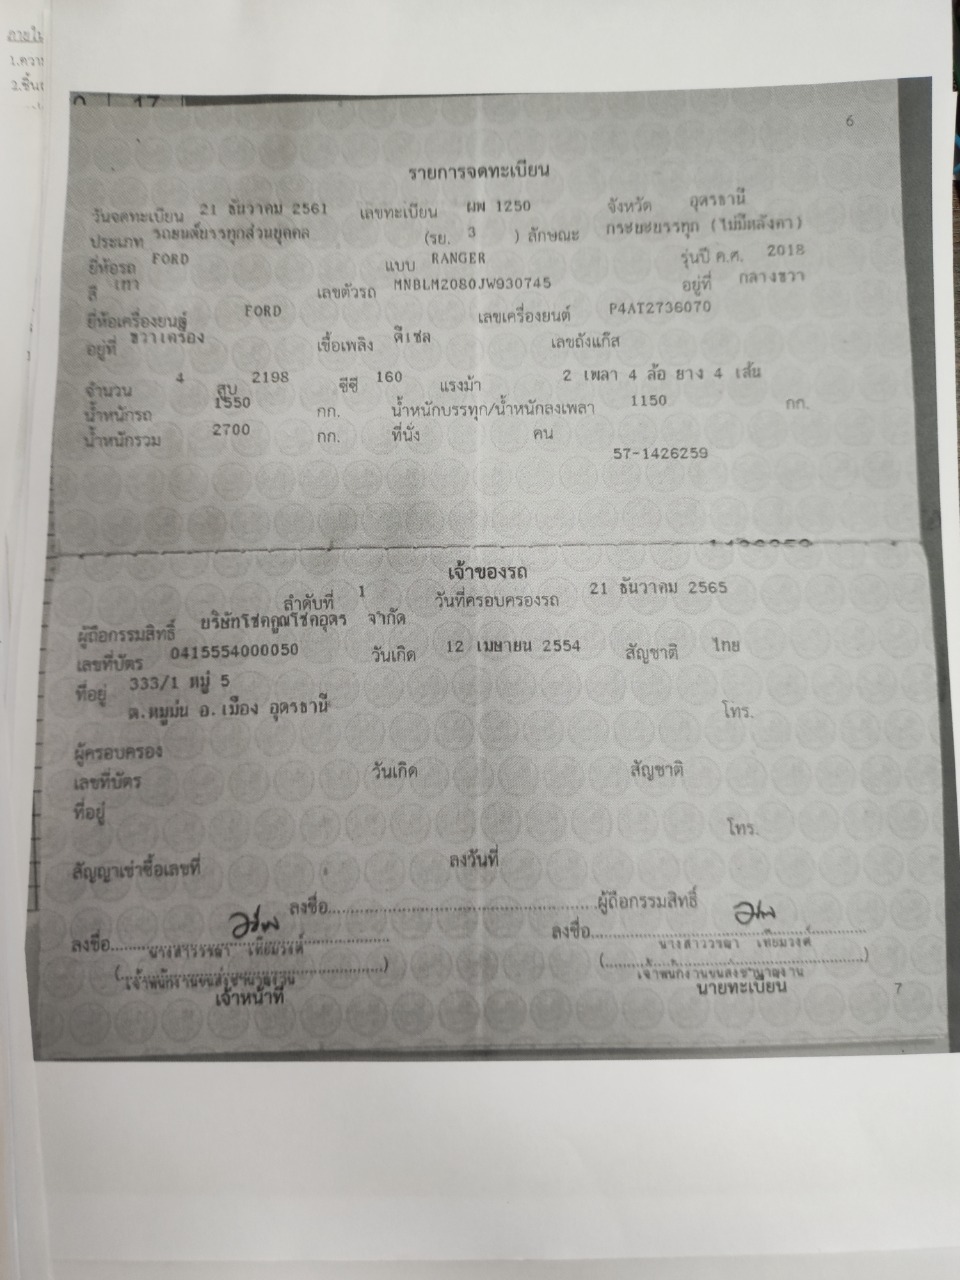 ภายใน
1.ความ
2.ชิ้น
17
6
รายการจดทะเบียน
วันจดทะเบียน 21 ธันวาคม 2561 เลขทะเบียน ผพ 1250 จังหวัด อุดรธานี
ประเภท รถยนต์บรรทุกส่วนบุคคล (รย. 3 ) ลักษณะ กระบะบรรทุก (ไม่มีหลังคา)
ยี่ห้อรถ FORD แบบ RANGER รุ่นปี ค.ศ. 2018
สี เทา เลขตัวรถ MNBLMZ080JW930745 อยู่ที่ กลางขวา
ยี่ห้อเครื่องยนต์ FORD เลขเครื่องยนต์ P4AT2736070
อยู่ที่ ขวาเครื่อง เชื้อเพลิง ดีเซล เลขถังแก๊ส
จำนวน 4 สูบ 2198 ซีซี 160 แรงม้า 2 เพลา 4 ล้อ ยาง 4 เส้น
น้ำหนักรถ 1550 กก. น้ำหนักบรรทุก/น้ำหนักลงเพลา 1150 กก.
น้ำหนักรวม 2700 กก. ที่นั่ง คน
57-1426259
เจ้าของรถ
ลำดับที่ 1 วันที่ครอบครองรถ 21 ธันวาคม 2565
ผู้ถือกรรมสิทธิ์ บริษัทโชคคูณโชคอุดร จำกัด
เลขที่บัตร 0415554000050 วันเกิด 12 เมษายน 2554 สัญชาติ ไทย
ที่อยู่ 333/1 หมู่ 5
ต.หมูม่น อ.เมือง อุดรธานี โทร.
ผู้ครอบครอง
เลขที่บัตร วันเกิด สัญชาติ
ที่อยู่
โทร.
สัญญาเช่าซื้อเลขที่ ลงวันที่
ลงชื่อ.....................................................ผู้ถือกรรมสิทธิ์
ลงชื่อ............................................ ลงชื่อ............................................
นางสาววรรณา เทียมวงศ์ นางสาววรรณา เทียมวงศ์
(............................................) (............................................)
เจ้าพนักงานขนส่งชำนาญงาน เจ้าพนักงานขนส่งชำนาญงาน
เจ้าหน้าที่ นายทะเบียน
7